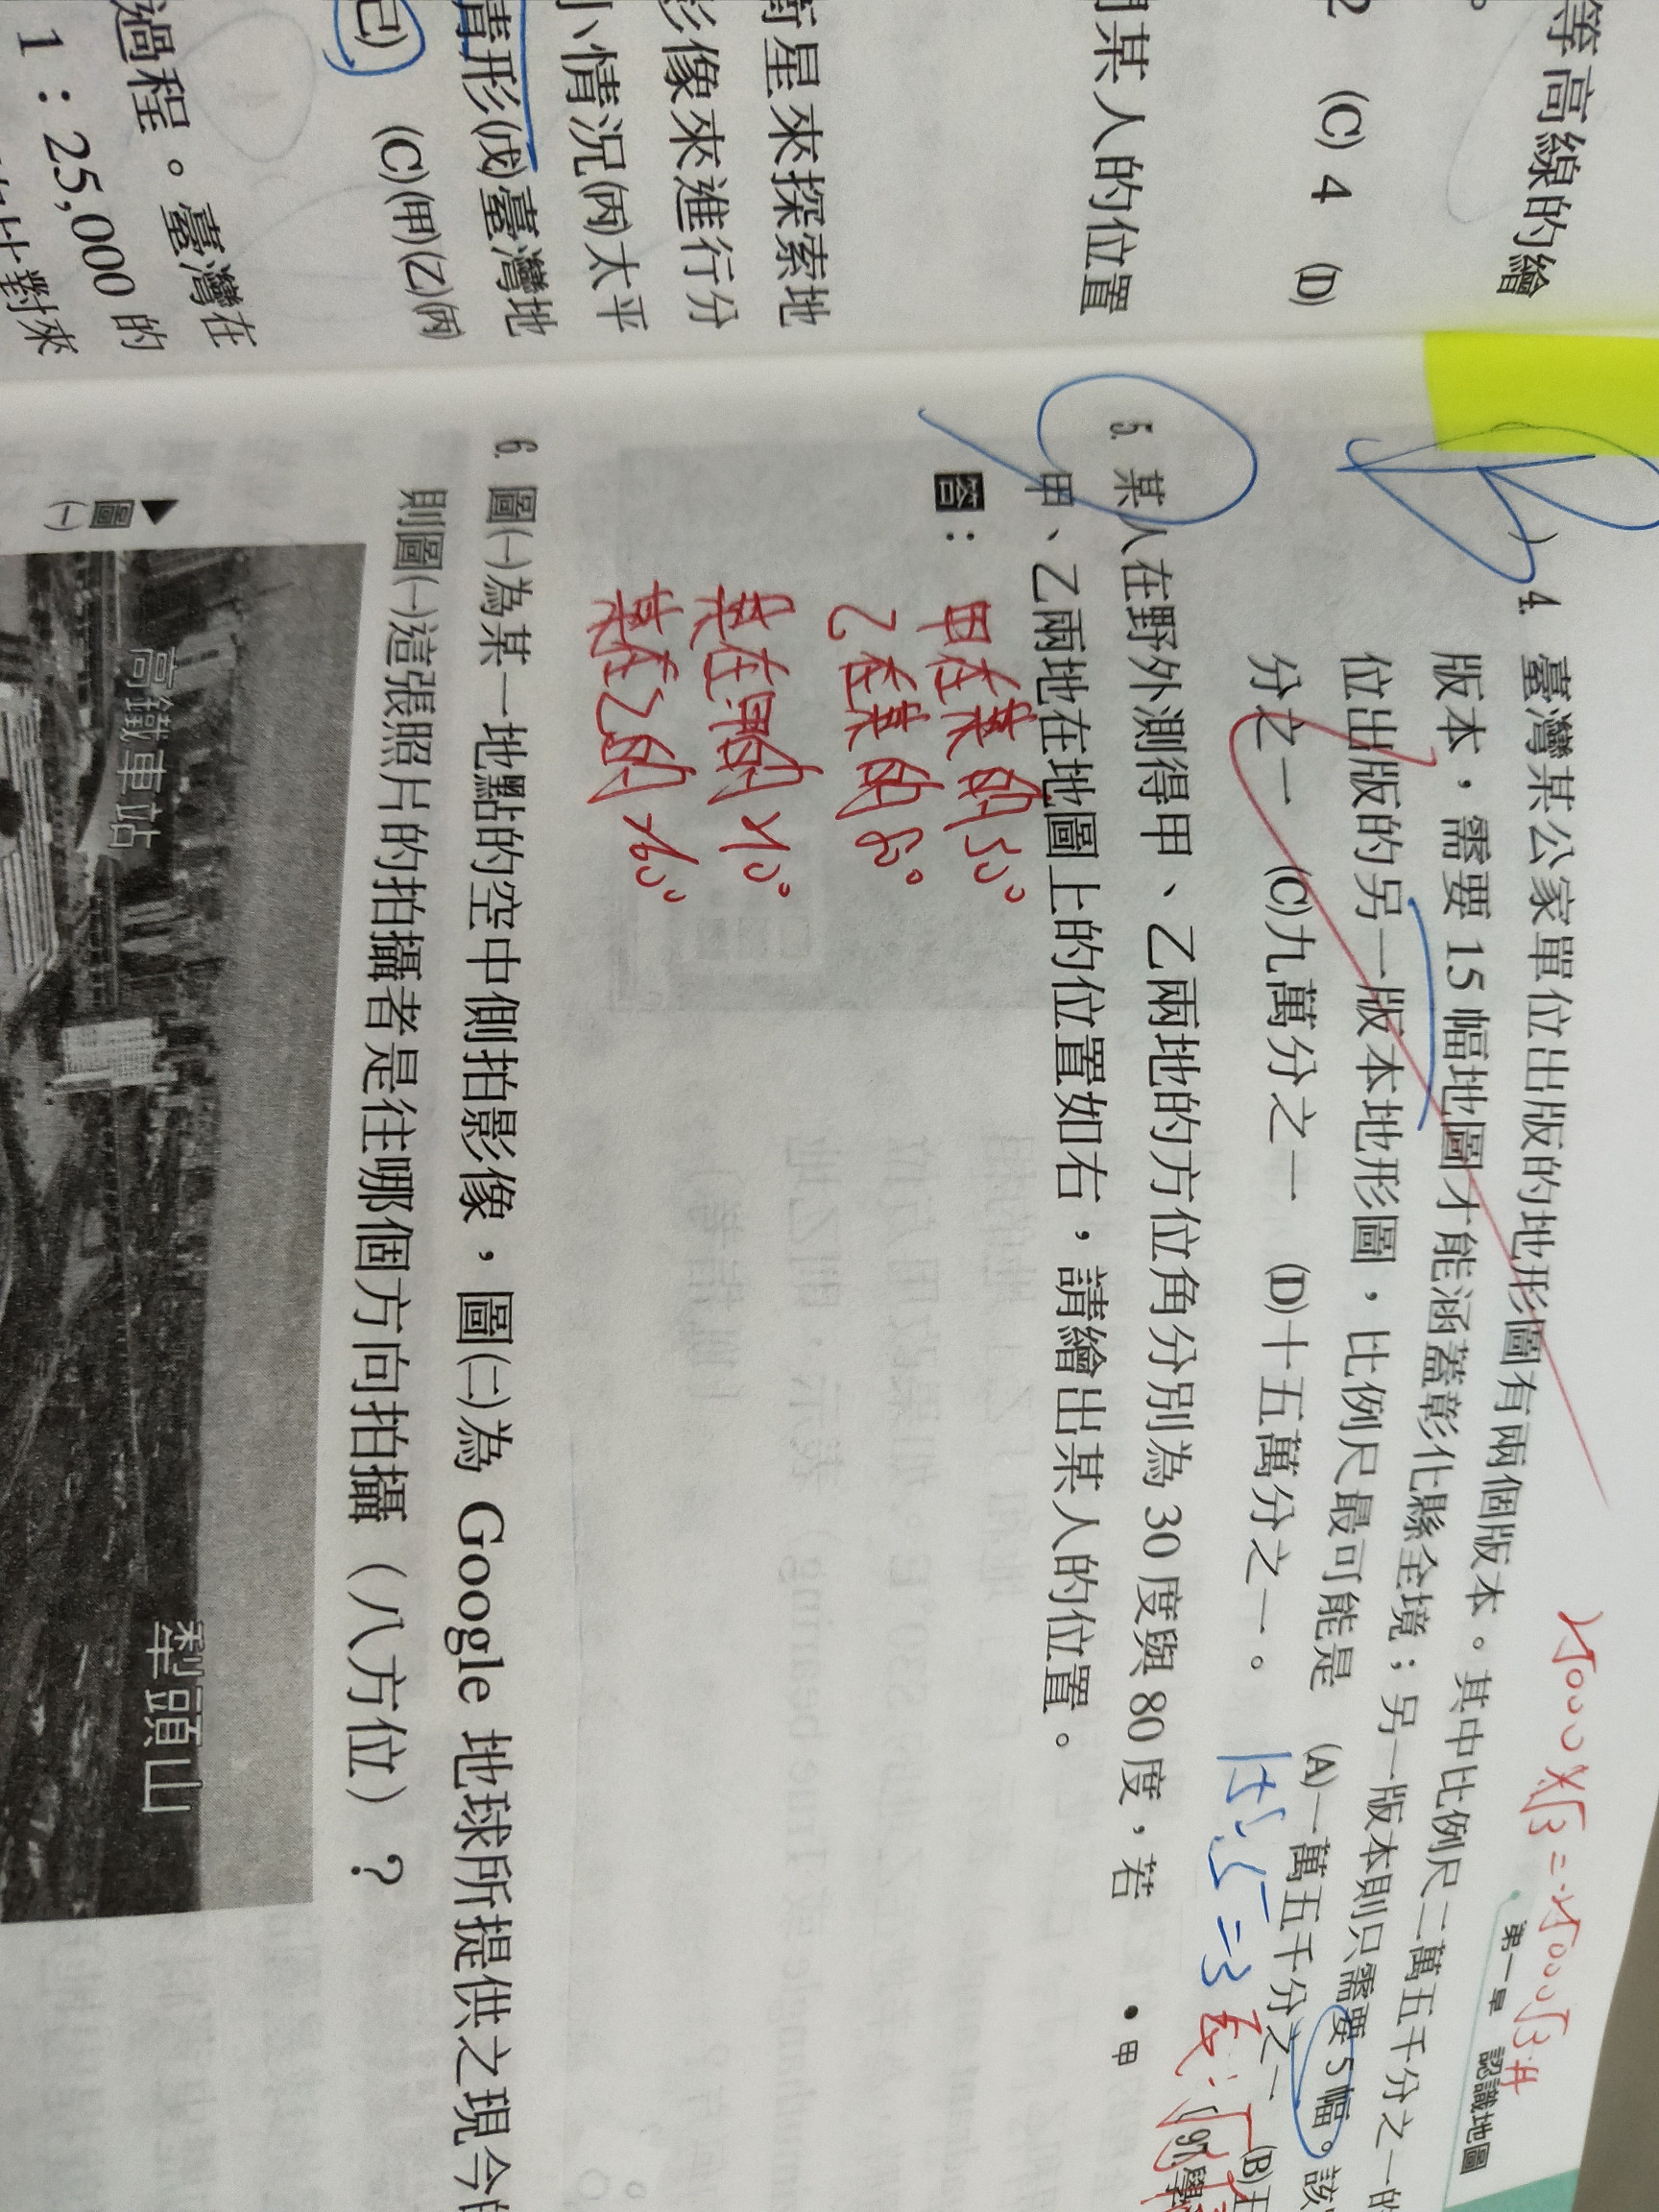 等高線的繪
。
2 (C) 4 (D)
某人的位置
衛星來探索地
影像來進行分
小情況(丙)太平
情形(戊)臺灣地
(己) (C)(甲)(乙)(丙)
過程。臺灣在
1:25,000 的
第一章 認識地圖
)4. 臺灣某公家單位出版的地形圖有兩個版本。其中比例尺二萬五千分之一的
版本,需要 15 幅地圖才能涵蓋彰化縣全境;另一版本則只需要 5 幅。該
位出版的另一版本地形圖,比例尺最可能是 (A)一萬五千分之一 (B)五
分之一 (C)九萬分之一 (D)十五萬分之一。
5. 某人在野外測得甲、乙兩地的方位角分別為 30 度與 80 度,若
甲、乙兩地在地圖上的位置如右,請繪出某人的位置。
•甲
答:
甲在某的30°
乙在某的80°
某在甲的210°
某在乙的260°
6. 圖(一)為某一地點的空中側拍影像,圖(二)為 Google 地球所提供之現今
則圖(一)這張照片的拍攝者是往哪個方向拍攝(八方位)?
▲圖(一)
高鐵車站
犁頭山